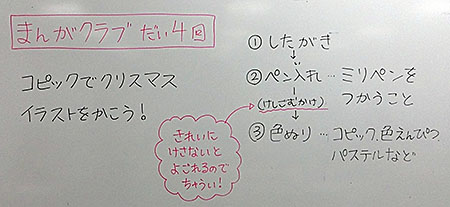 まんがクラブ だい4回
コピックでクリスマス
イラストをかこう!
① したがき
↓
② ペン入れ … ミリペンを
つかうこと
(けしごむかけ)
③ 色ぬり … コピック、色えんぴつ
パステルなど
きれいに
けさないと
よごれるので
ちゅうい!